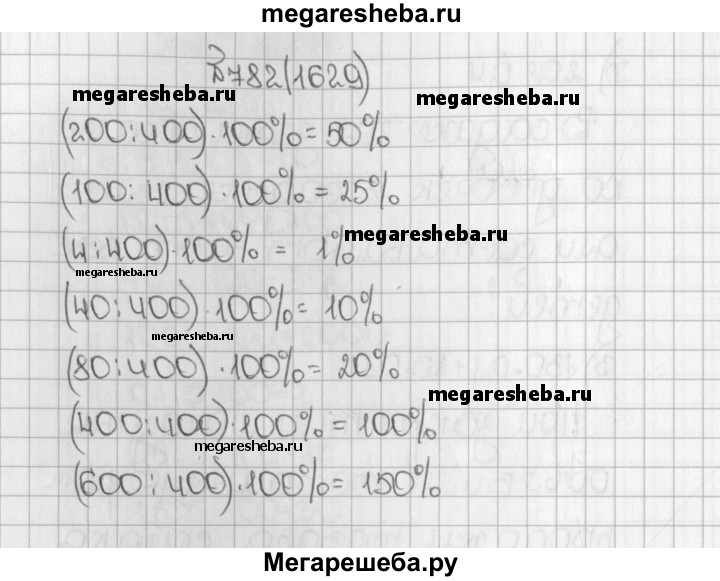 megaresheba.ru
№782(1629)
megaresheba.ru
megaresheba.ru
(200:400)·100%=50%
(100:400)·100%=25%
(4:400)·100%= 1%
megaresheba.ru
megaresheba.ru
(40:400)·100%=10%
megaresheba.ru
(80:400)·100%=20%
megaresheba.ru
(400:400)·100%=100%
megaresheba.ru
(600:400)·100%=150%
Мегарешеба.ру